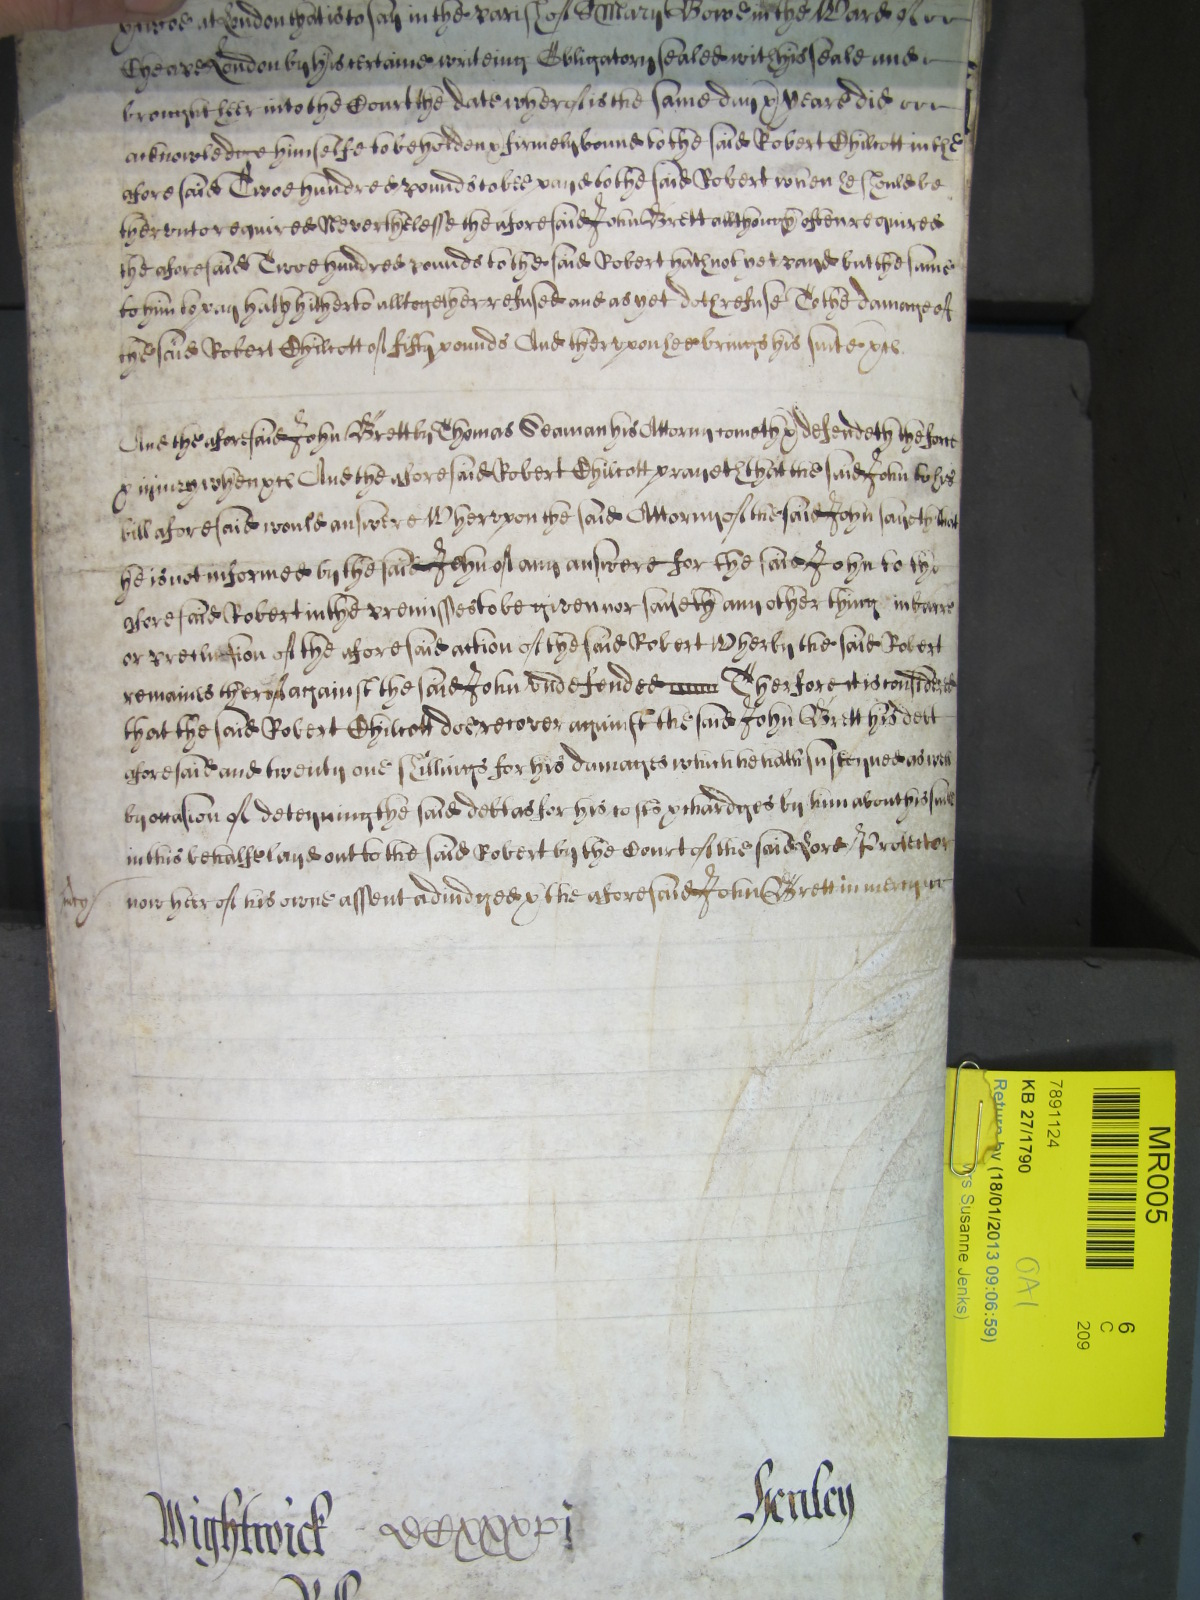 at London that is to say in the parish of S Mary Bowe in the Ward of
Cheape London by his certaine writeing Obligatory sealed with his seale and
brought heer into the Court the date wherof is the same day & yeare did
acknowledge himselfe to be holden & firmely bound to the said Robert Chilcott in the
aforesaid Twoe hundred pounds to bee payd to the said Robert when he should be
therunto required Neverthelesse the aforesaid John Brett allthough often required
the aforesaid Twoe hundred pounds to the said Robert hath not yet payd but the same
to him to pay hath hitherto alltogether refused and as yet doth refuse To the damage of
the said Robert Chilcott of fifty pounds And therupon hee brings his suite &c
And the aforesaid John Brett by Thomas Seaman his Attorny cometh & defendeth the force
& injury when &c And the aforesaid Robert Chilcott prayeth that the said John to his
bill aforesaid would answere Wherupon the said Attorny of the said John sayeth that
he is not informed by the said John of any answere for the said John to the
aforesaid Robert in the premisses to be given nor sayeth any other thing in barre
or preclusion of the aforesaid action of the said Robert Wherby the said Robert
remaines therof against the said John undefended Therfore it is considered
that the said Robert Chilcott doe recover against the said John Brett his debt
aforesaid and twenty one shillings for his damages which he hath susteyned as well
by occasion of deteyning the said debt as for his costs & chardges by him about his suite
in this behalfe layd out to the said Robert by the Court of the said Lord Protector
now heer of his owne assent adjudged & the aforesaid John Brett in mercy &c
mcy
Wightwick
Henley
MR005
6
C
209
7891124
KB 27/1790
OA1
Return by (18/01/2013 09:06:59)
rs Susanne Jenks)